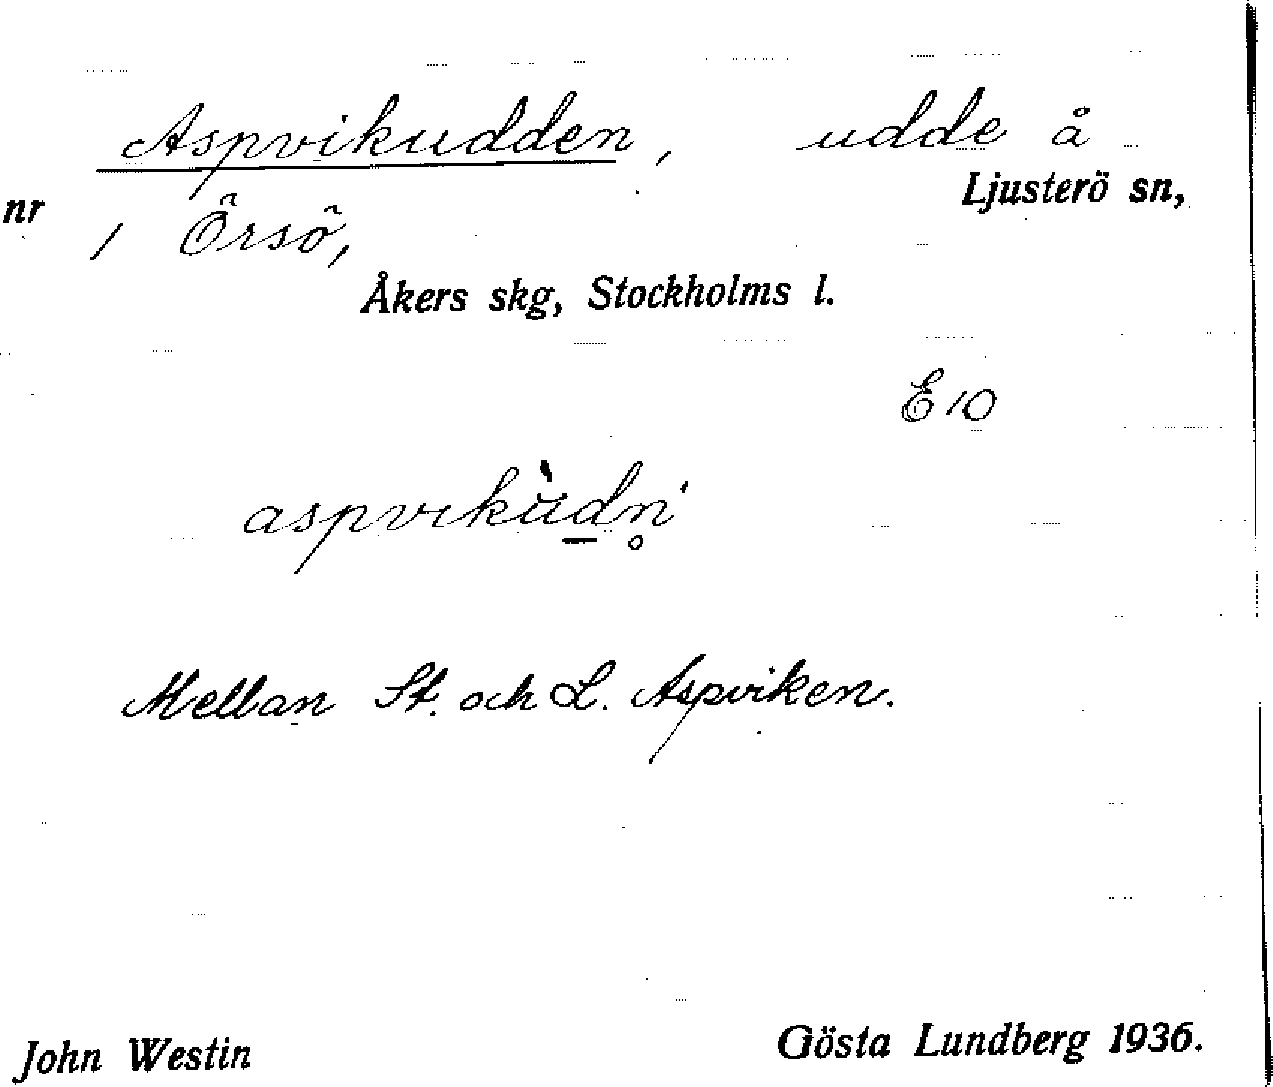 Aspvikudden, udde å
Ljusterö sn,
nr 1 Örsö,
Åkers skg, Stockholms l.
E 10
aspvikùdn̥
Mellan St. och L. Aspviken.
John Westin
Gösta Lundberg 1936.